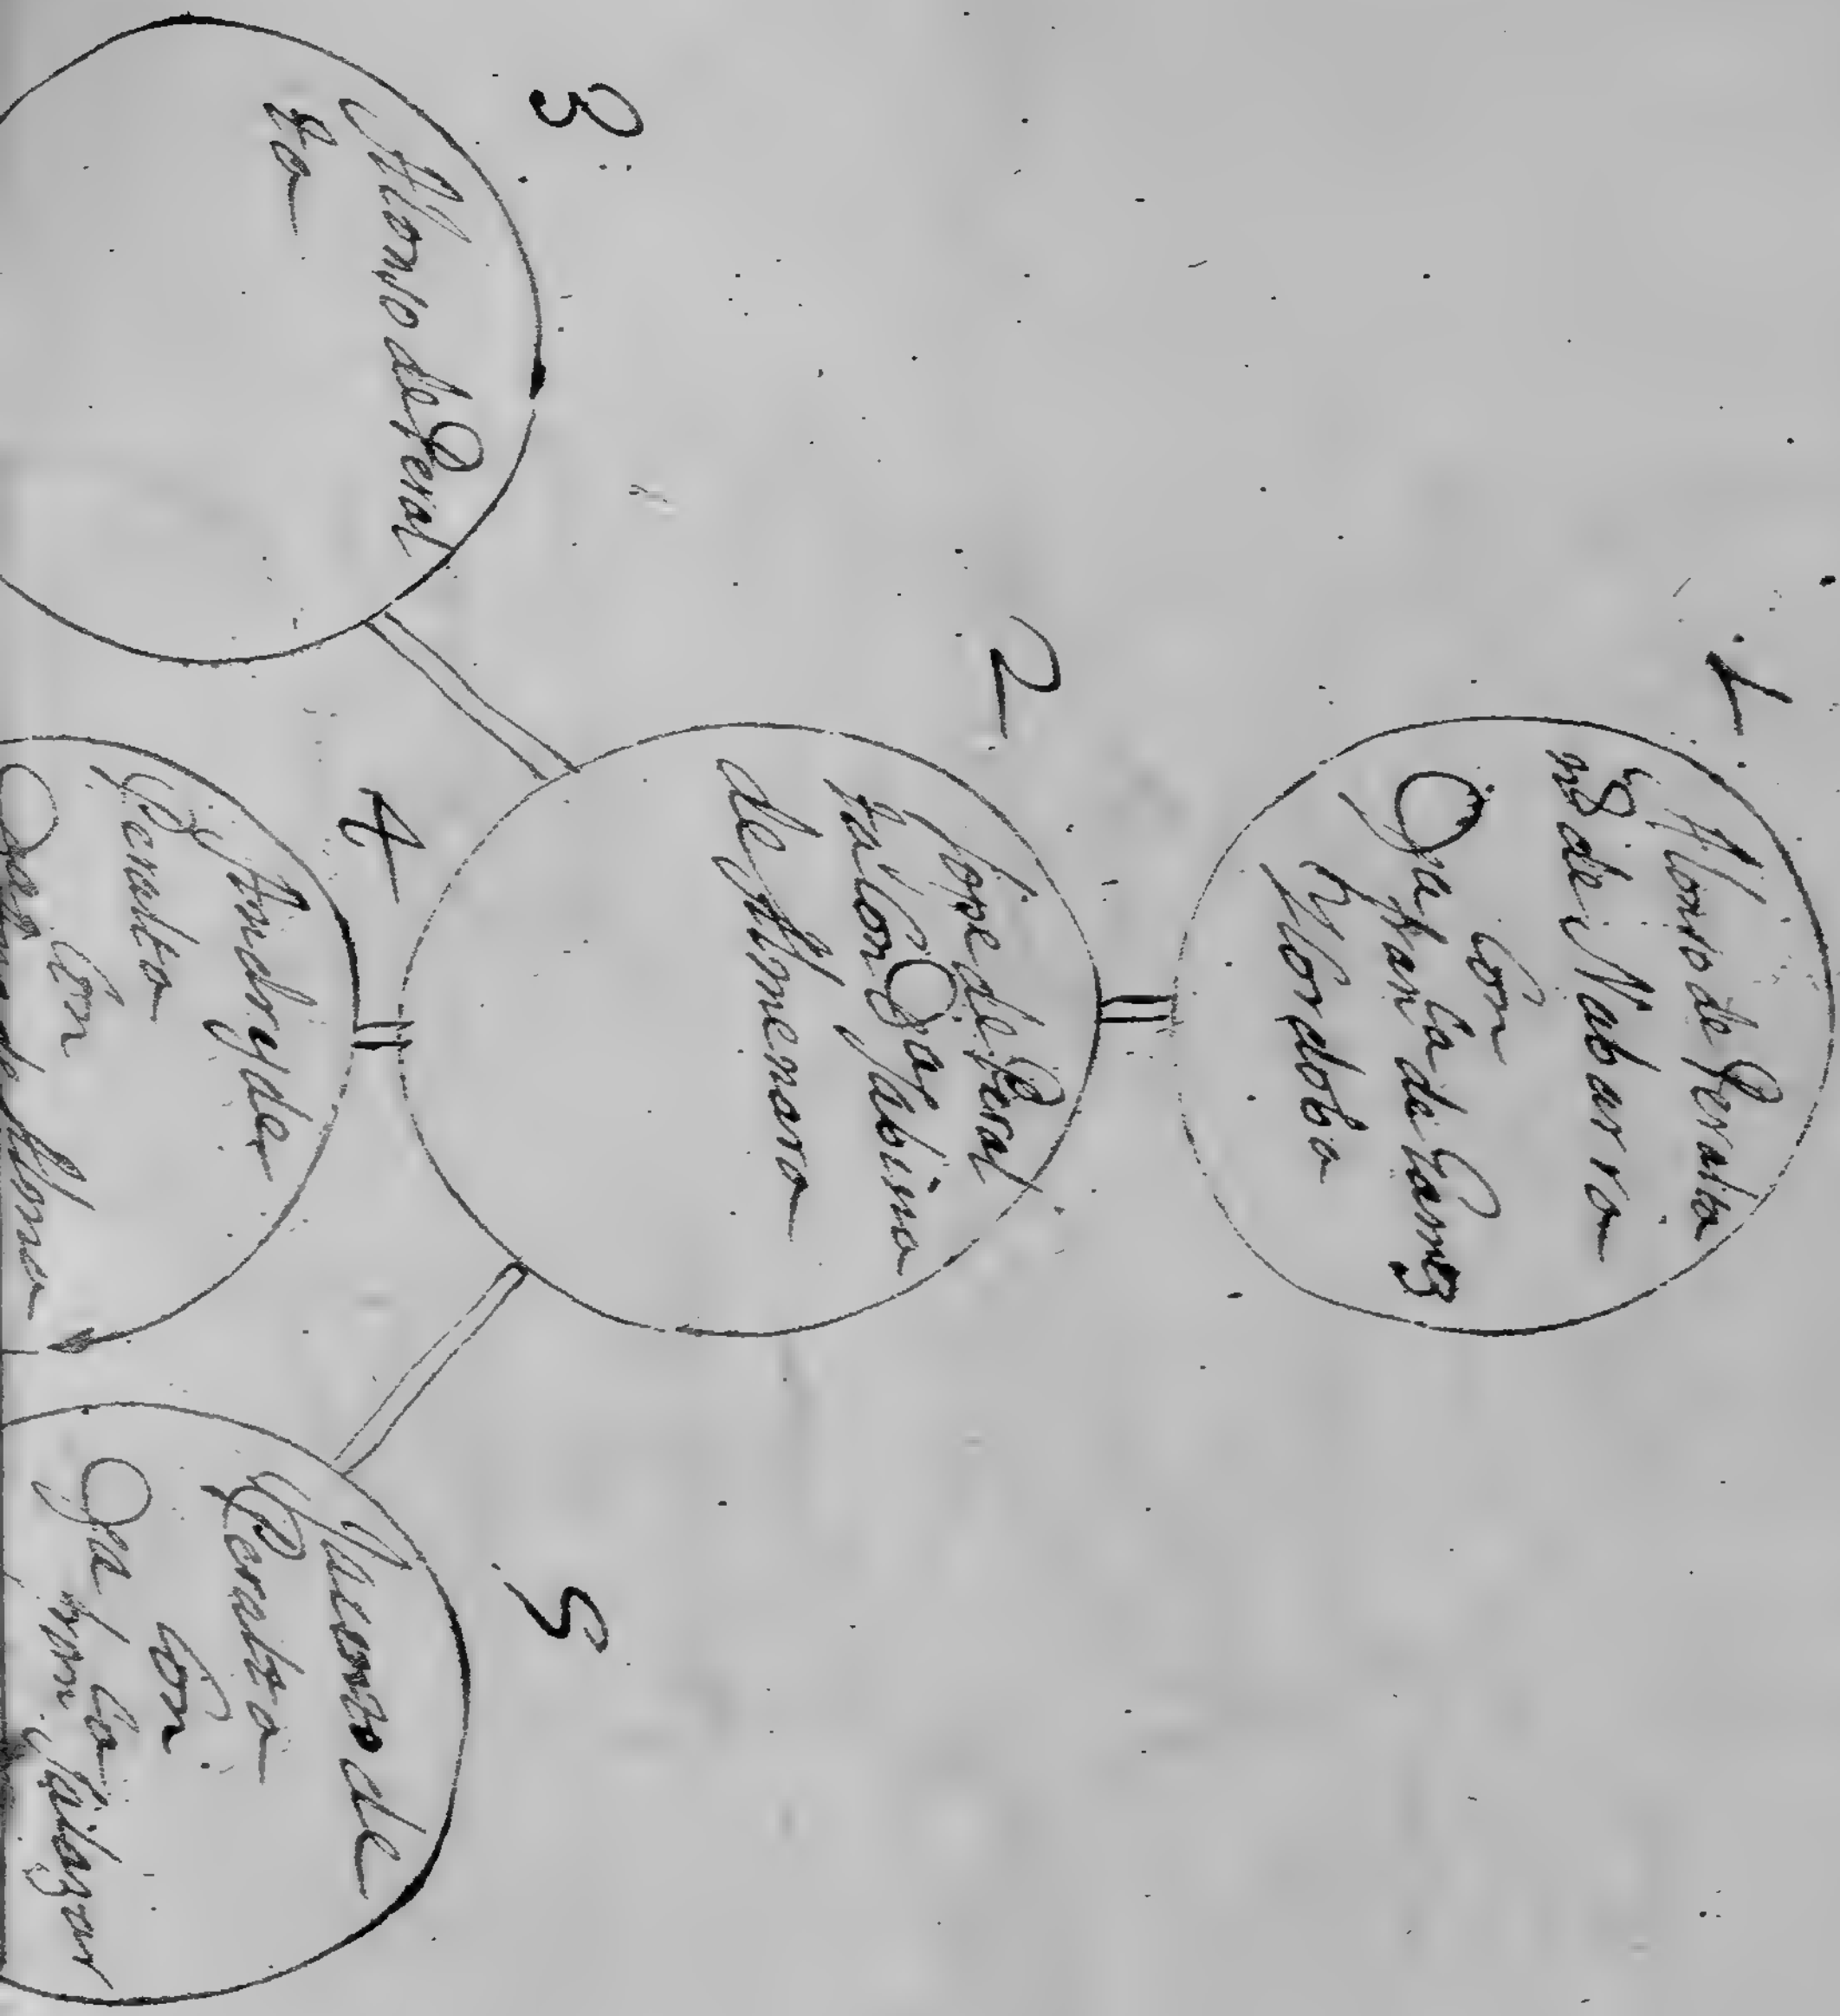 1
Alonso de Peralta
nz de Nabarro
Con
Da fran ca de Gamez
y Cordoba
2
Jose de Peral
ta Con Da Sabina
de Almenara
3
Alonso de Peral
ta
4
Andry de
Peralta
Con
5
Alonso de
Peralta
Con
Da fran ca